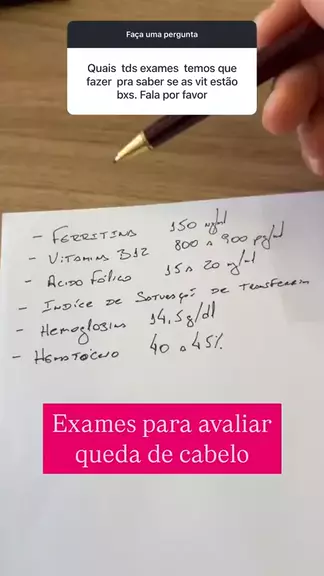 Faça uma pergunta
Quais tds exames temos que
fazer pra saber se as vit estão
bxs. Fala por favor
- FERRITINA 150 ng/ml
- VITAMINA B12 800 a 900 pg/ml
- ÁCIDO FÓLICO 15 a 20 ng/ml
- ÍNDICE DE SATURAÇÃO DE TRANSFERRINA
- HEMOGLOBINA 14,5 g/dl
- HEMATÓCRITO 40 a 45%
Exames para avaliar
queda de cabelo